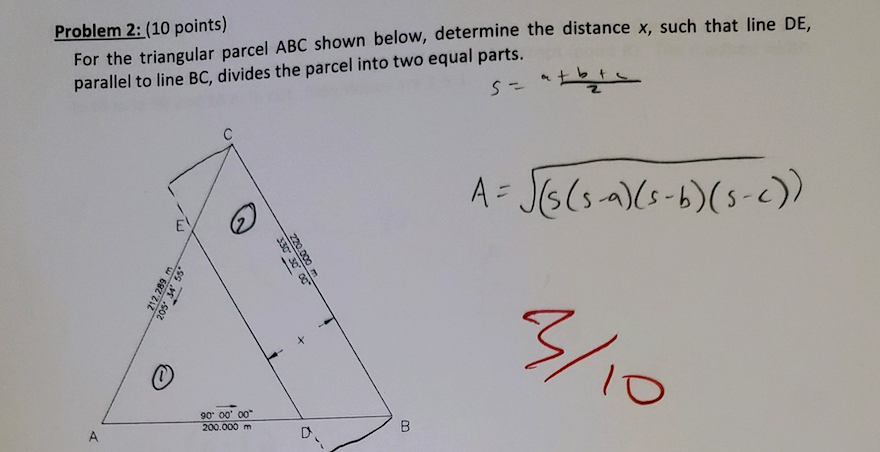 Problem 2: (10 points)
For the triangular parcel ABC shown below, determine the distance x, such that line DE,
parallel to line BC, divides the parcel into two equal parts.
s = a + b + c
2
C
A = √(s(s-a)(s-b)(s-c))
E
②
220.000 m
330° 30' 00"
212.289 m
205° 34' 55"
x
3/10
①
90° 00' 00"
200.000 m
A
D
B